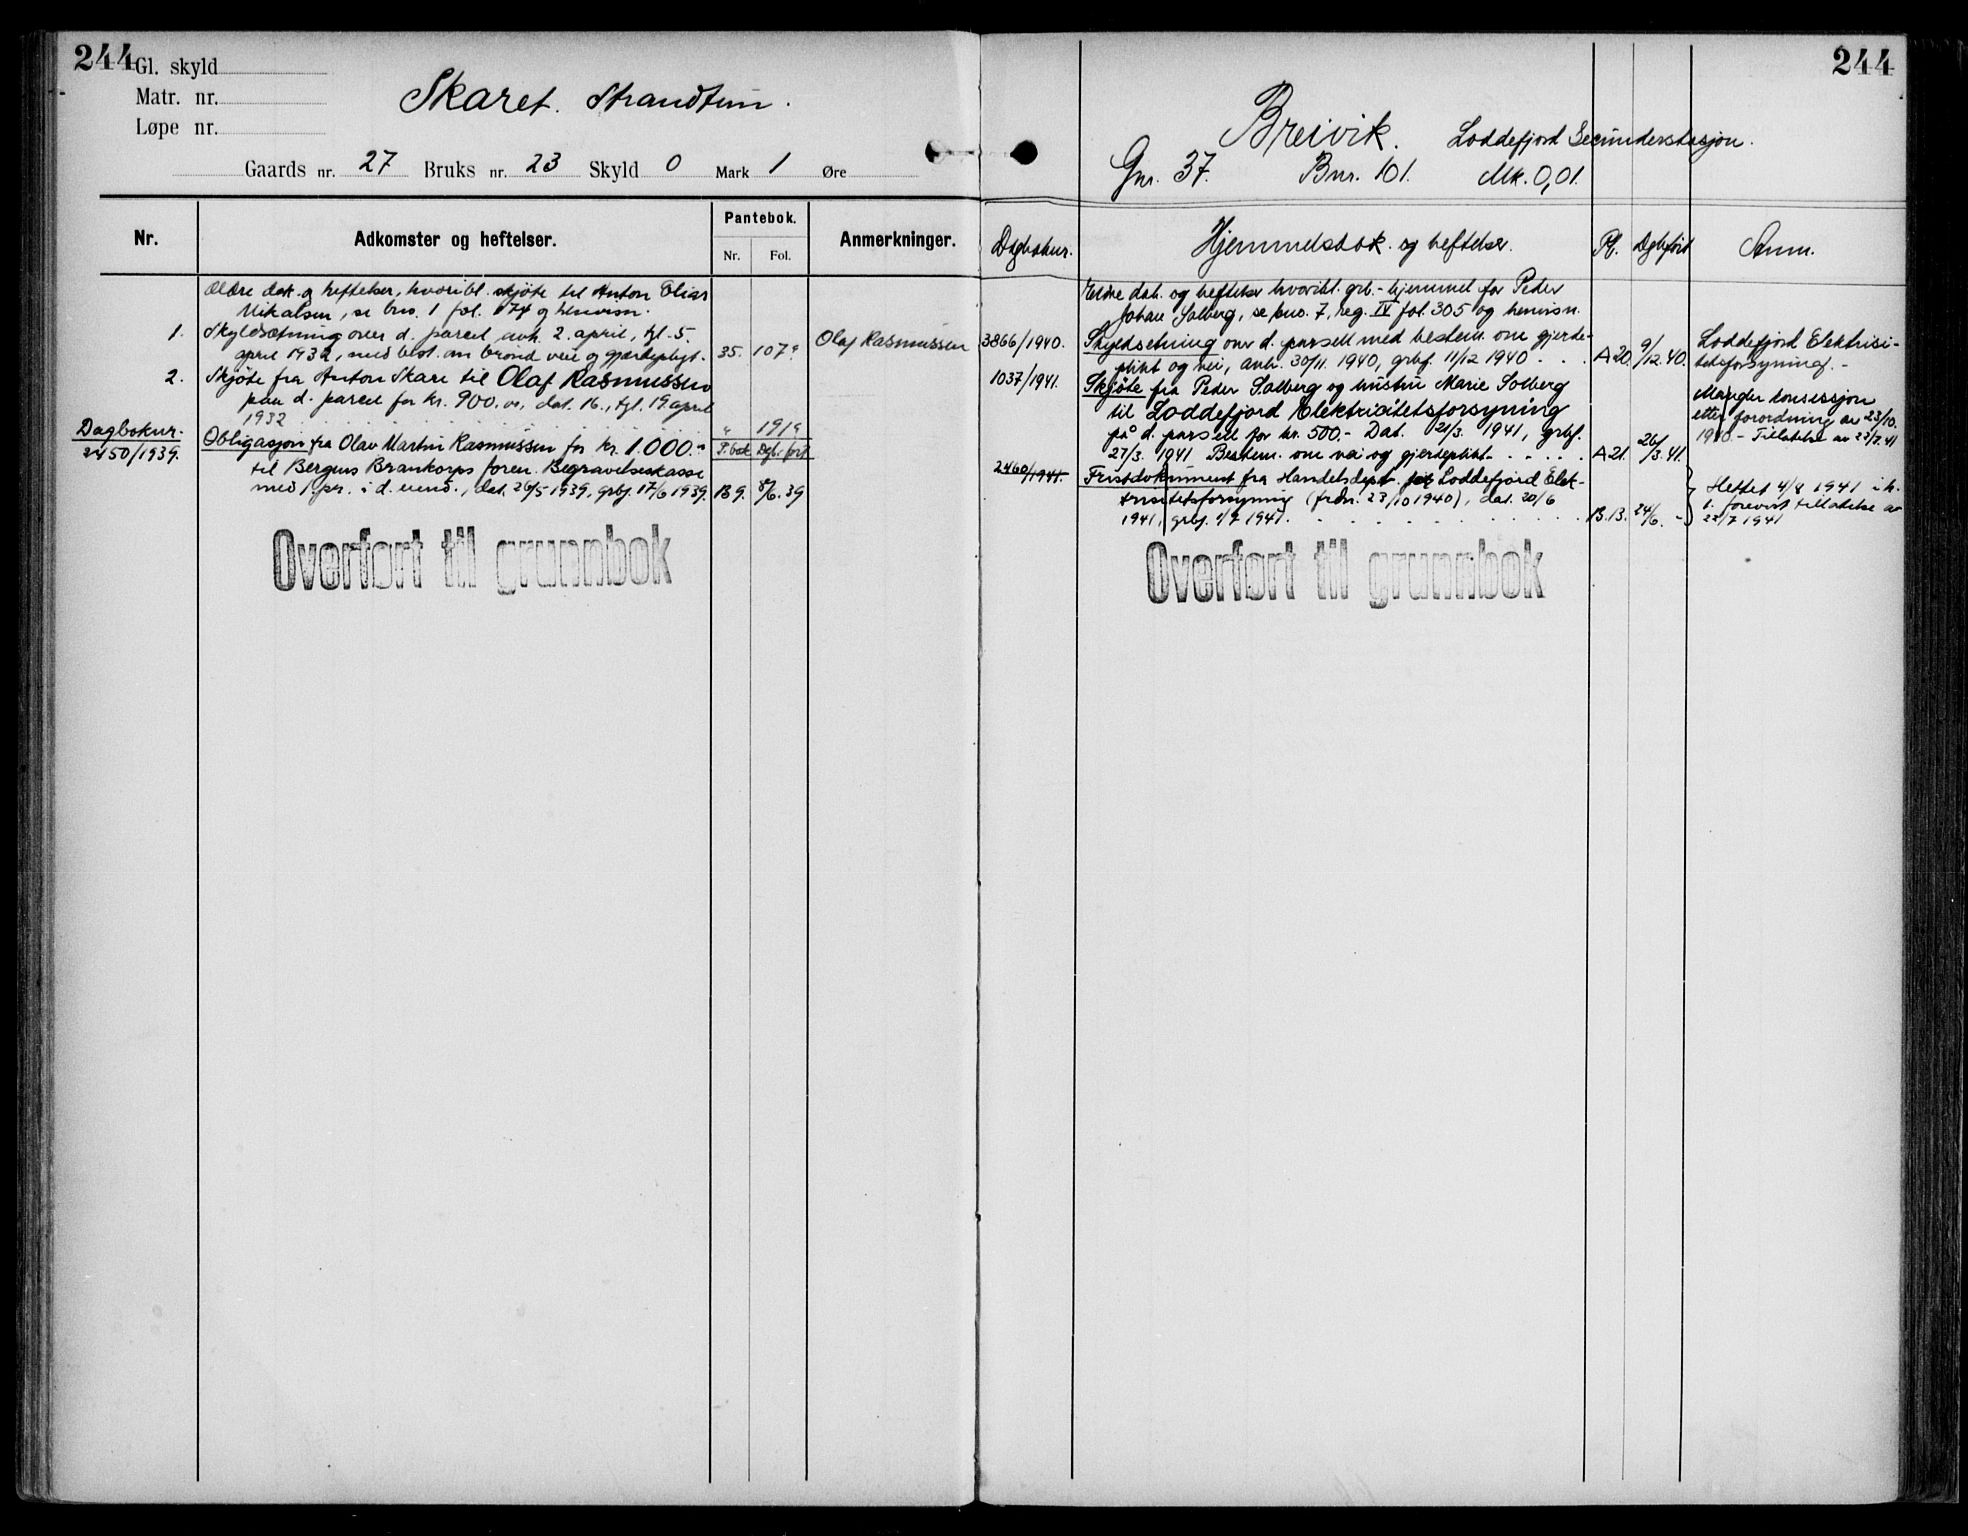 244
Gl. skyld
Matr. nr.
Løpe nr.
Skaret. Strandtun.
Gaards nr. 27 Bruks nr. 23 Skyld 0 Mark 1 Øre
Nr.
Adkomster og heftelser.
Pantebok.
Nr. Fol.
Anmerkninger.
Ældre dok. og heftelser, hvoribl. skjøte til Anton Elias
Mikalsen, se bno. 1 fol. 174 og henvisn.
1. Skyldsætning over d. parcel avh. 2. april, tgl. 5.
april 1932, med best. om brønd vei og gjærdepligt. 35. 107a Olaf Rasmussen
2. Skjøte fra Anton Skare til Olaf Rasmussen
paa d. parcel for kr. 900.00, dat. 16., tgl. 19 april
1932 . . . . . . . . . . " 191a
Dagboknr.
2450/1939.
P.bok Dgb. ført
Obligasjon fra Olav Martin Rasmussen for kr. 1.000.-
til Bergens Brankorps foren. Begravelseskasse
med 1 pr. i d. eiend., dat. 26/5 1939, grbf. 17/6 1939. B9. 8/6.39
Overført til grunnbok
244
Breivik. Loddefjord Secunderstasjon.
Gnr. 37. Bnr. 101. Mk. 0,01.
Dagboknr.
Hjemmelsdok. og heftelser.
Pb.
Dgbført
Anm.
Eldre dok. og heftelser hvoribl. grb.-hjemmel for Peder
Johan Solberg, se bno. 7, reg. IV fol. 305 og henvisn.
3866/1940. Skyldsetning over d. parsell med bestem. om gjerde-
plikt og vei, avh. 30/11. 1940, grbf. 11/12 1940 . . . A20. 9/12.40.
Loddefjord Elektrisi-
tetsforsyning. -
1037/1941. Skjøte fra Peder Solberg og hustru Marie Solberg
til Loddefjord Elektricitetsforsyning
på d. parsell for kr. 500.- Dat. 21/3. 1941, grbf.
27/3. 1941 Bestem. om vei og gjerdeplikt. . . . . A21. 26/3.41.
Mangler konsesjon
etter forordning av 23/10.
1940.- Tillatelse av 22/7.41
2460/1941. Fristdokument fra Handelsdept. for Loddefjord Elek-
trisitetsforsyning (fredn. 23/10 1940), dat. 20/6
1941, grbf. 1/7 1941. . . . . . . . . . B.13. 24/6. -
Hevet 4/8 1941 i h.
t. forevist tillatelse av
22/7 1941
Overført til grunnbok